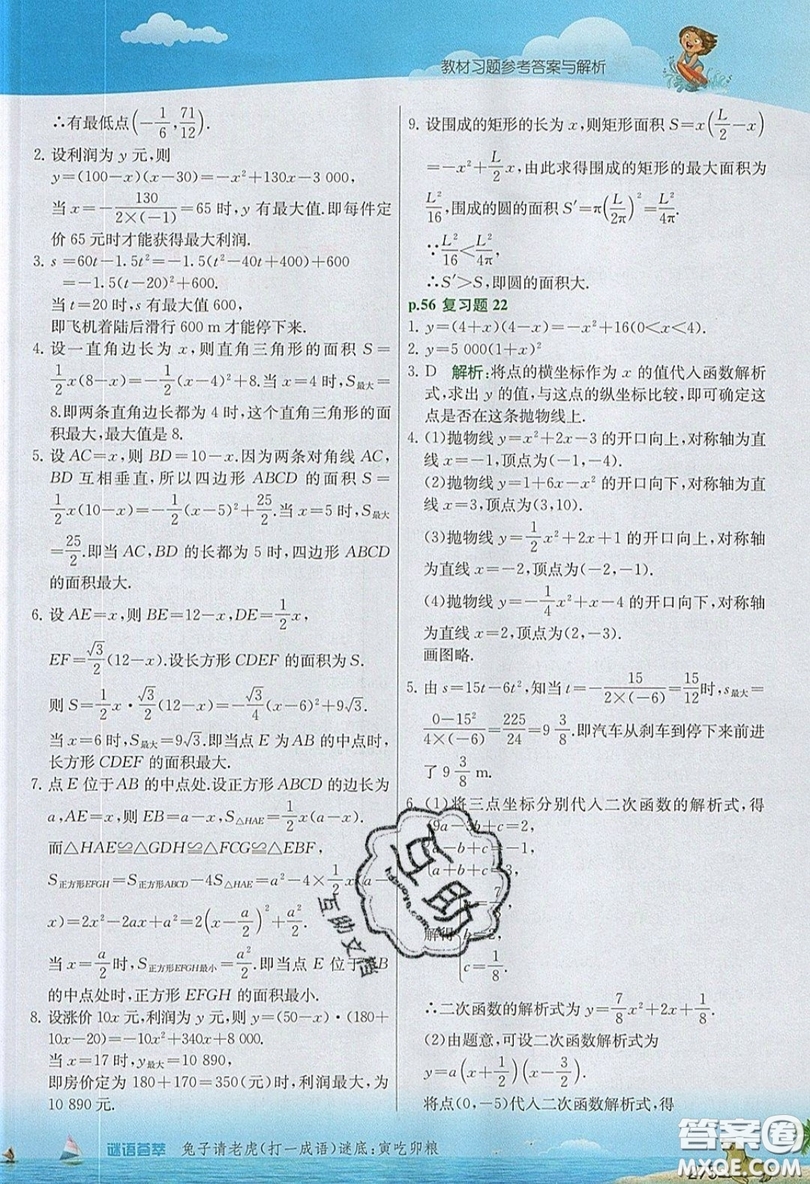 教材习题参考答案与解析
∴有最低点(-1/6, 71/12).
2. 设利润为 y 元,则
y=(100-x)(x-30)=-x²+130x-3 000,
当 x=-130/(2×(-1))=65 时,y 有最大值.即每件定
价 65 元时才能获得最大利润.
3. s=60t-1.5t²=-1.5(t²-40t+400)+600
=-1.5(t-20)²+600.
当 t=20 时,s 有最大值 600,
即飞机着陆后滑行 600 m 才能停下来.
4. 设一直角边长为 x,则直角三角形的面积 S=
1/2 x(8-x)=-1/2(x-4)²+8.当 x=4 时,S最大=
8.即两条直角边长都为 4 时,这个直角三角形的面
积最大,最大值是 8.
5. 设 AC=x,则 BD=10-x.因为两条对角线 AC,
BD 互相垂直,所以四边形 ABCD 的面积 S=
1/2 x(10-x)=-1/2(x-5)²+25/2.当 x=5 时,S最大
=25/2.即当 AC,BD 的长都为 5 时,四边形 ABCD
的面积最大.
6. 设 AE=x,则 BE=12-x,DE=1/2 x,
EF=√3/2(12-x).设长方形 CDEF 的面积为 S.
则 S=1/2 x·√3/2(12-x)=-√3/4(x-6)²+9√3.
当 x=6 时,S最大=9√3.即当点 E 为 AB 的中点时,
长方形 CDEF 的面积最大.
7. 点 E 位于 AB 的中点处.设正方形 ABCD 的边长为
a,AE=x,则 EB=a-x,S△HAE=1/2 x(a-x).
而△HAE≌△GDH≌△FCG≌△EBF,
S正方形EFGH=S正方形ABCD-4S△HAE=a²-4×1/2 x(a-
x)=2x²-2ax+a²=2(x-a/2)²+a²/2.
当 x=a/2 时,S正方形EFGH最小=a²/2.即当点 E 位于 AB
的中点处时,正方形 EFGH 的面积最小.
8. 设涨价 10x 元,利润为 y 元,则 y=(50-x)·(180+
10x-20)=-10x²+340x+8 000.
当 x=17 时,y最大=10 890,
即房价定为 180+170=350(元)时,利润最大,为
10 890 元.
9. 设围成的矩形的长为 x,则矩形面积 S=x(L/2-x)
=-x²+L/2 x,由此求得围成的矩形的最大面积为
L²/16,围成的圆的面积 S′=π(L/2π)²=L²/4π.
∵L²/16<L²/4π,
∴S′>S,即圆的面积大.
p.56 复习题 22
1. y=(4+x)(4-x)=-x²+16(0<x<4).
2. y=5 000(1+x)²
3. D 解析:将点的横坐标作为 x 的值代入函数解析
式,求出 y 的值,与这点的纵坐标比较,即可确定这
点是否在这条抛物线上.
4. (1)抛物线 y=x²+2x-3 的开口向上,对称轴为直
线 x=-1,顶点为(-1,-4).
(2)抛物线 y=1+6x-x² 的开口向下,对称轴为直
线 x=3,顶点为(3,10).
(3)抛物线 y=1/2 x²+2x+1 的开口向上,对称轴
为直线 x=-2,顶点为(-2,-1).
(4)抛物线 y=-1/4 x²+x-4 的开口向下,对称轴
为直线 x=2,顶点为(2,-3).
画图略.
5. 由 s=15t-6t²,知当 t=-15/(2×(-6))=15/12时,s最大=
(0-15²)/(4×(-6))=225/24=9 3/8.即汽车从刹车到停下来前进
了 9 3/8 m.
6. (1)将三点坐标分别代入二次函数的解析式,得
+c=2,
+c=-1,
解得
=2,
c=1/8.
∴二次函数的解析式为 y=7/8 x²+2x+1/8.
(2)由题意,可设二次函数解析式为
y=a(x+1/2)(x-3/2).
将点(0,-5)代入二次函数解析式,得
互助
互助文档
谜语荟萃 兔子请老虎(打一成语)谜底:寅吃卯粮
答案圈
MXQE.COM